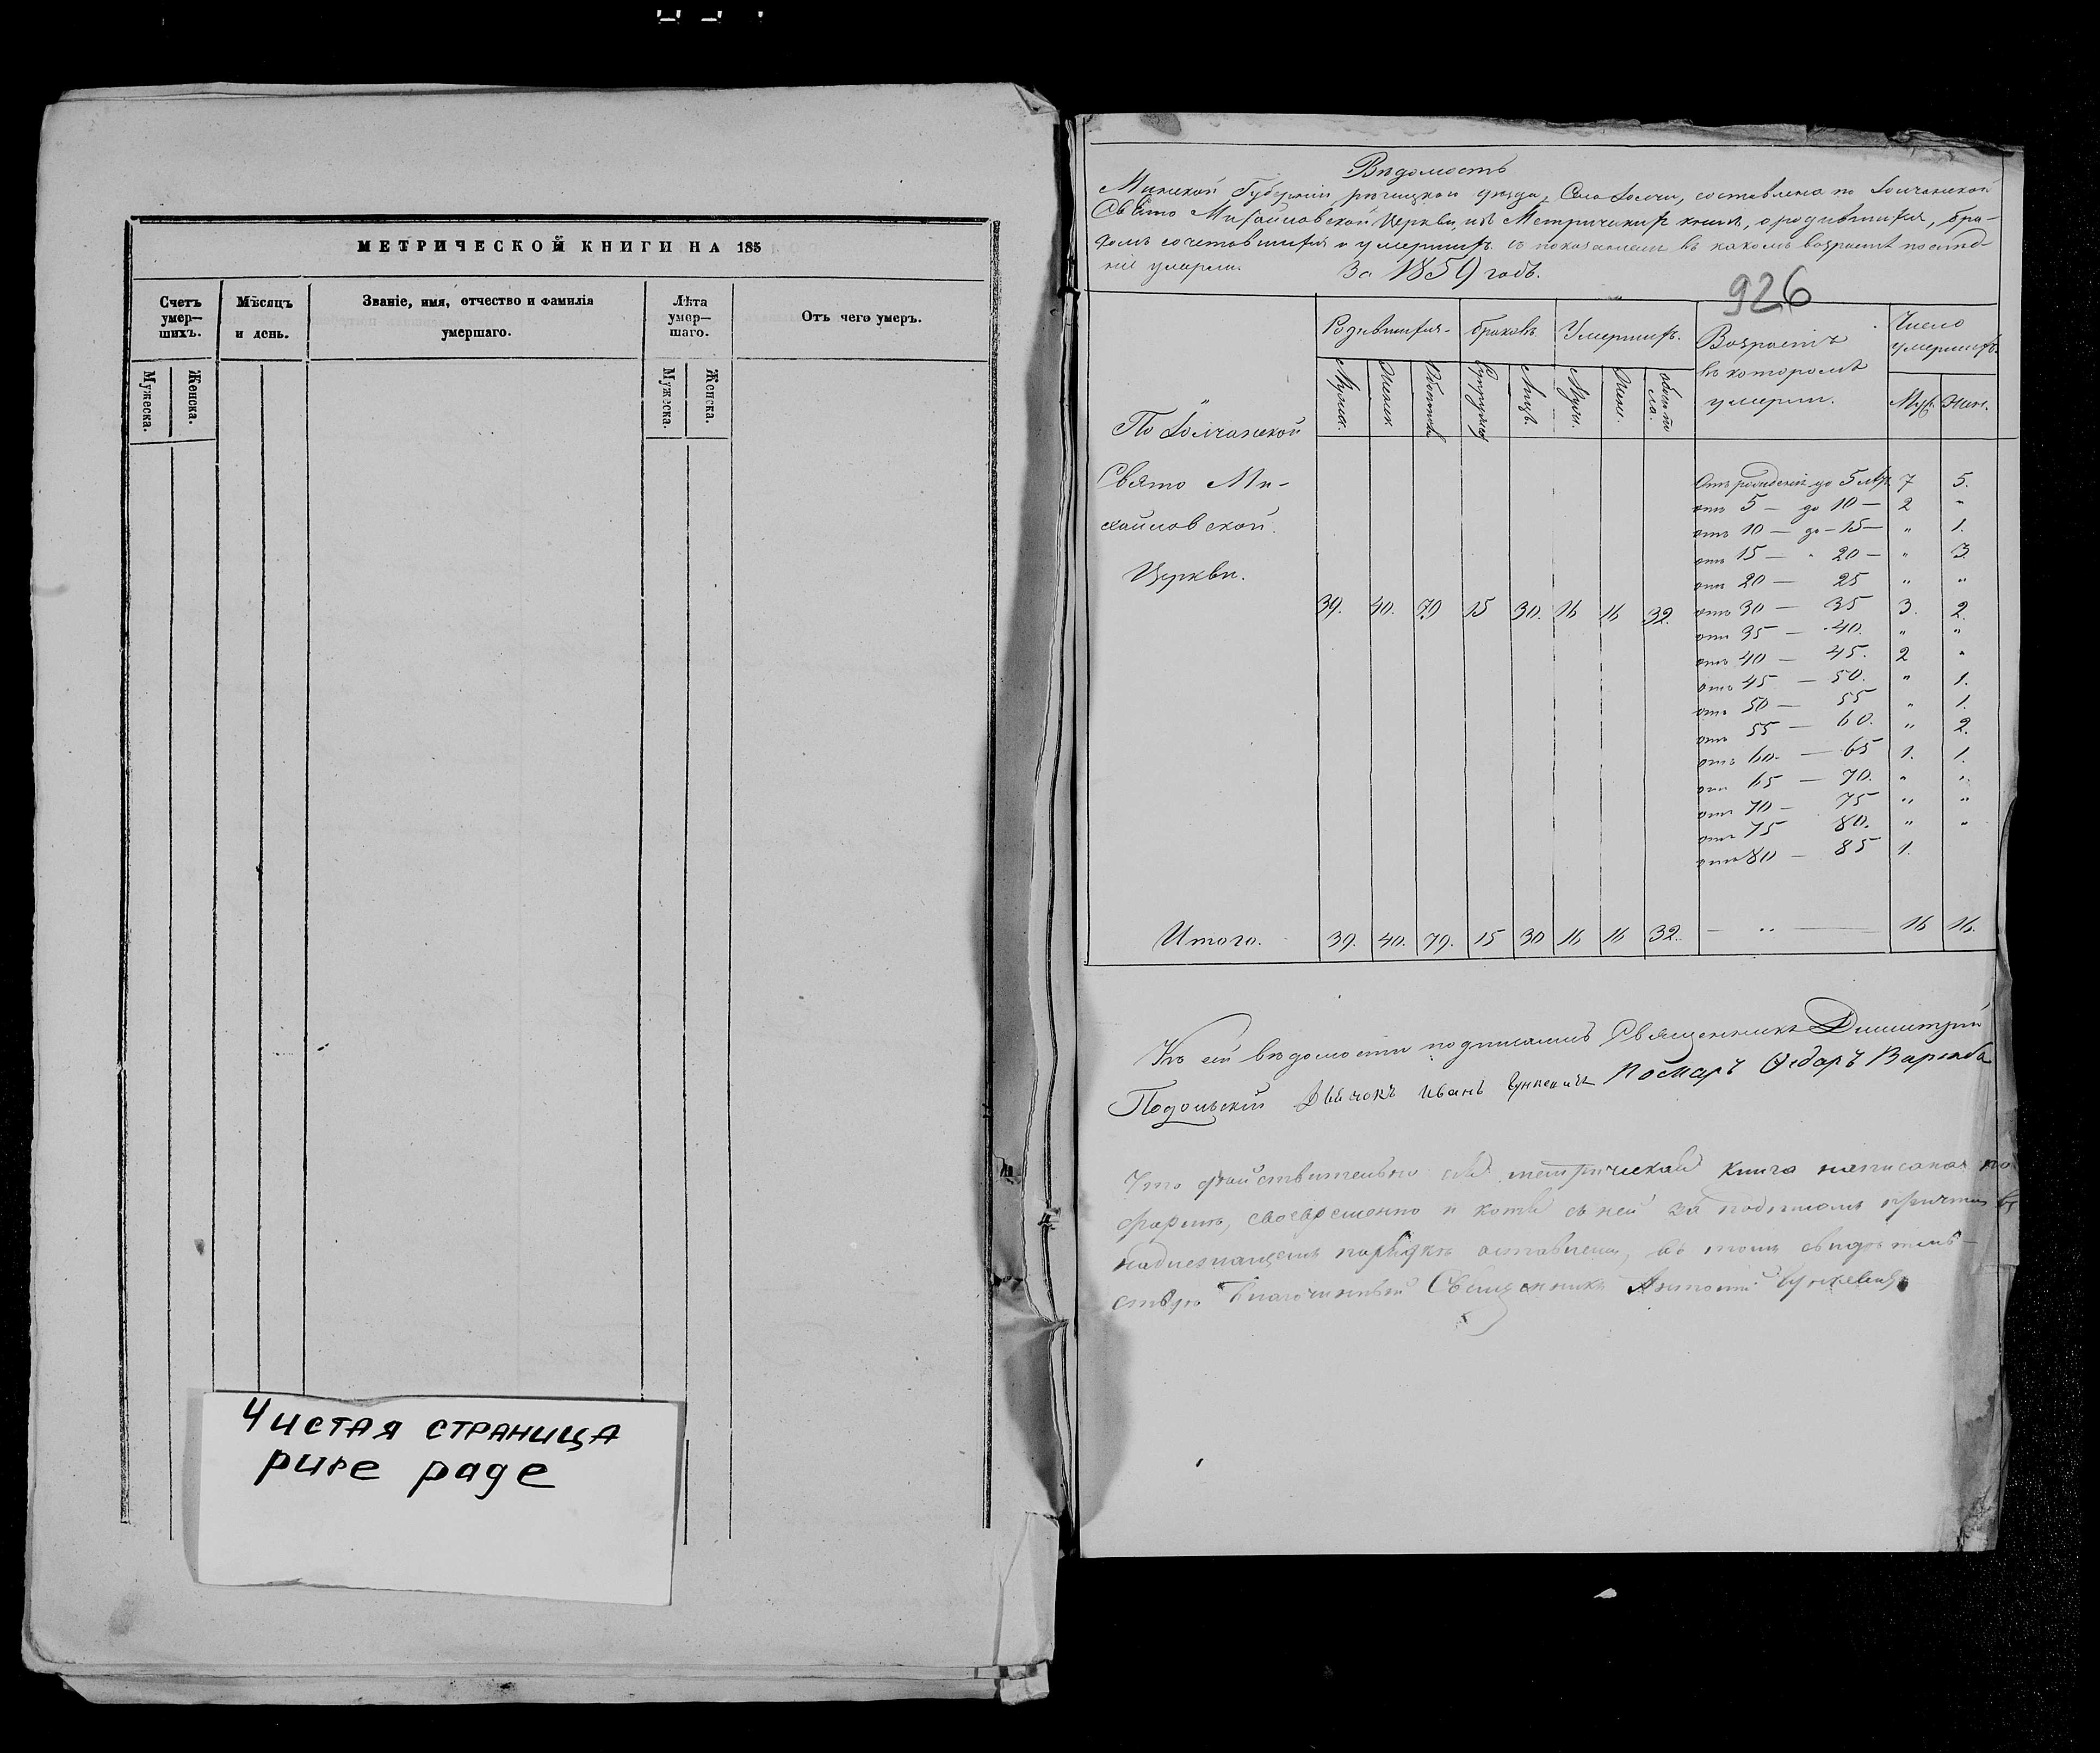 МЕТРИЧЕСКОЙ КНИГИ НА 185
Счетъ умер-шихъ.
Мѣсяцъ и день.
Званіе, имя, отчество и фамилія умершаго.
Лѣта умер-шаго.
Отъ чего умеръ.
Мужеска.
Женска.
Мужеска.
Женска.
Чистая страница
pure page
Вѣдомость
Минской Губерніи рѣчицкаго уѣзда, Села составлена по
Свято Михайловской Церкви, изъ Метрическихъ книгъ, о родившихся, бра-
комъ сочетавшихся и умершихъ съ показаніемъ въ какомъ возрастѣ послѣд-
ніе умерли. За 1859 годъ.
926
Родившихся. браковъ. Умершихъ. Возрастъ въ которомъ умерли. Число умершихъ.
Муж. Жен.
По
Свято Ми-
хайловской
Церкви.
39. 40. 79 15 30. 16 16 32.
Отъ рожденія до 5 лѣтъ 7 5.
отъ 5 — до 10 — 2 "
отъ 10 — до 15 — " 1.
отъ 15 — " 20 — " 3
отъ 20 — 25 " "
отъ 30 — 35 3. 2.
отъ 35 — 40. " "
отъ 40 — 45. 2 "
отъ 45 — 50. " 1.
отъ 50 — 55 " 1.
отъ 55 — 60. " 2.
отъ 60. — 65 1. 1.
отъ 65 — 70. " "
отъ 70 — 75 " "
отъ 75 80. " "
отъ 80 — 85 1.
Итого. 39. 40. 79. 15 30 16 16 32. — " — 16 16.
Къ сей вѣдомости подписались Священникъ Димитрій
Подольскій Дьячокъ Иванъ Пономарь Ѳедоръ
Что дѣйствительно сія метрическая книга написана по
формѣ, своевременно и копія съ ней за подписомъ причта въ
надлежащемъ порядкѣ оставлена, въ томъ свидѣтель-
ствую Благочинный Священникъ Антоній